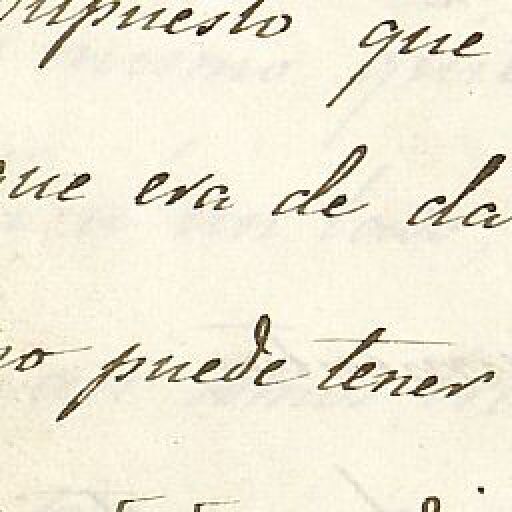 mpuesto que
que era de da
no puede tener